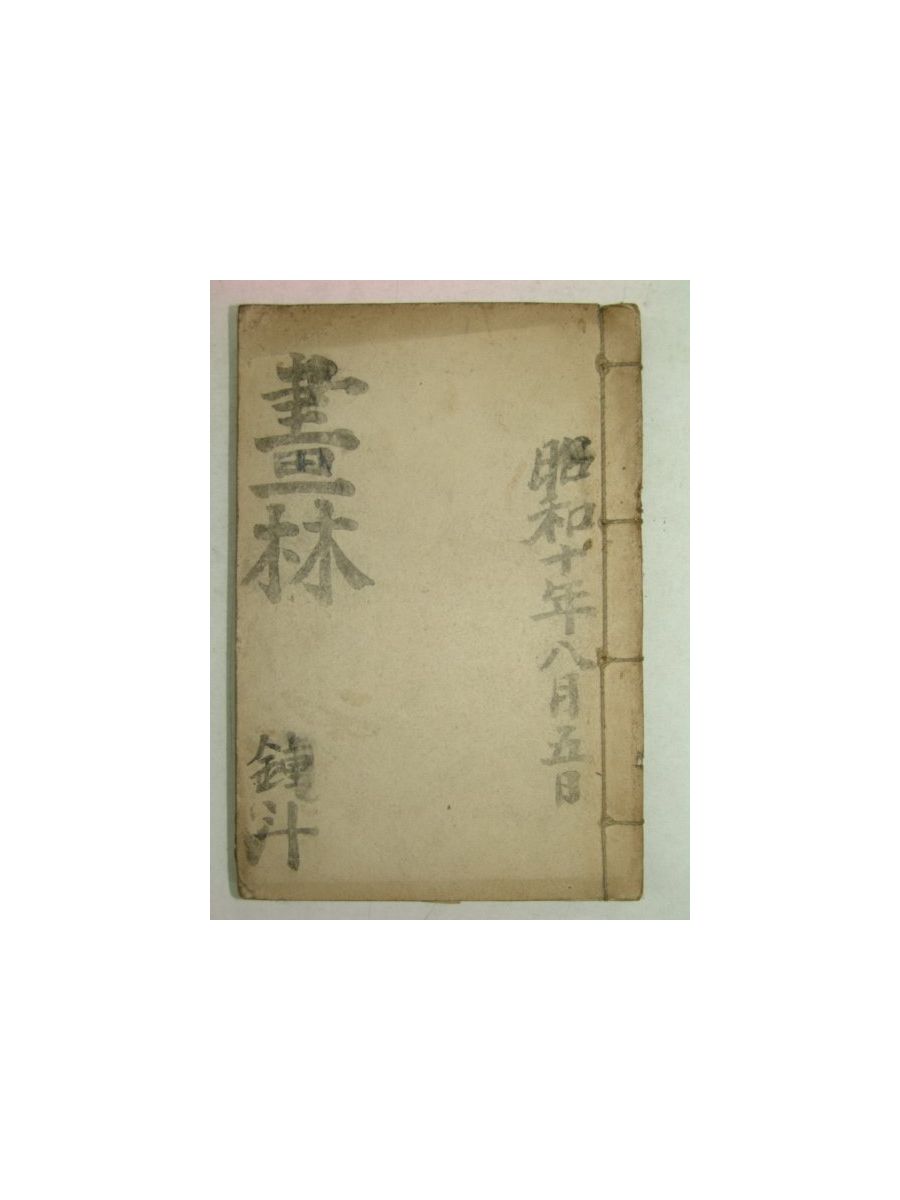 昭和十年八月五日
畫林
鍾斗